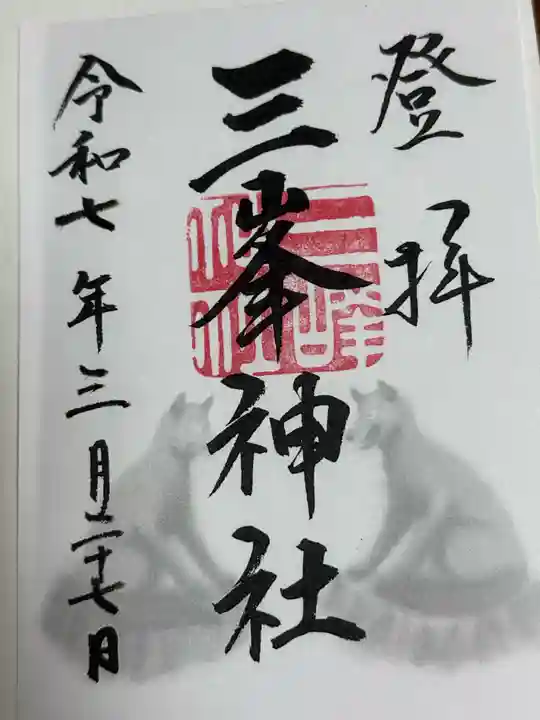 登拝
三峯神社
令和七年三月二十七日